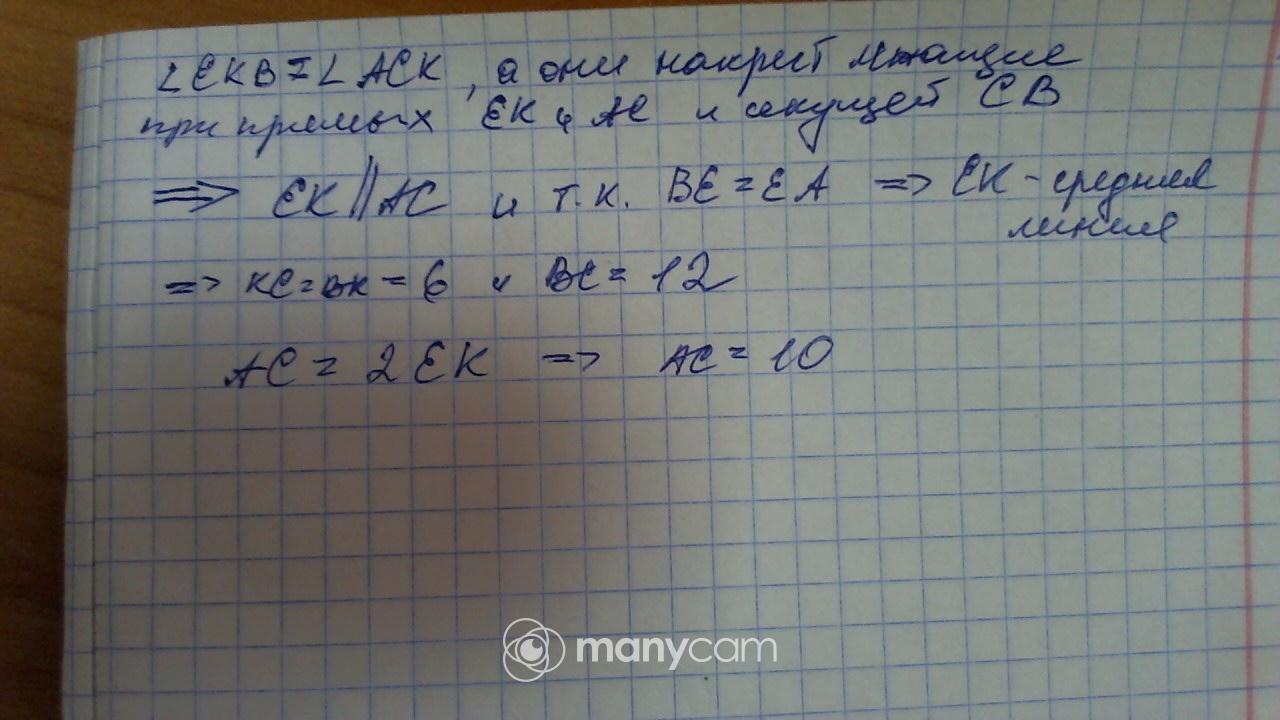 ∠EKB = ∠ACK, а они накрест лежащие
при прямых EK и AC и секущей CB
⟹ EK || AC и т.к. BE = EA => EK - средняя
линия
=> KC = BK = 6 и BC = 12
AC = 2EK => AC = 10
manycam